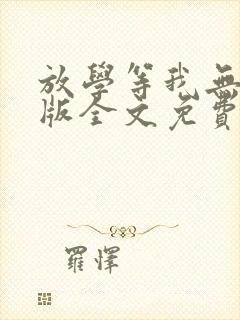 放學等我無
版全文免費
羅懌